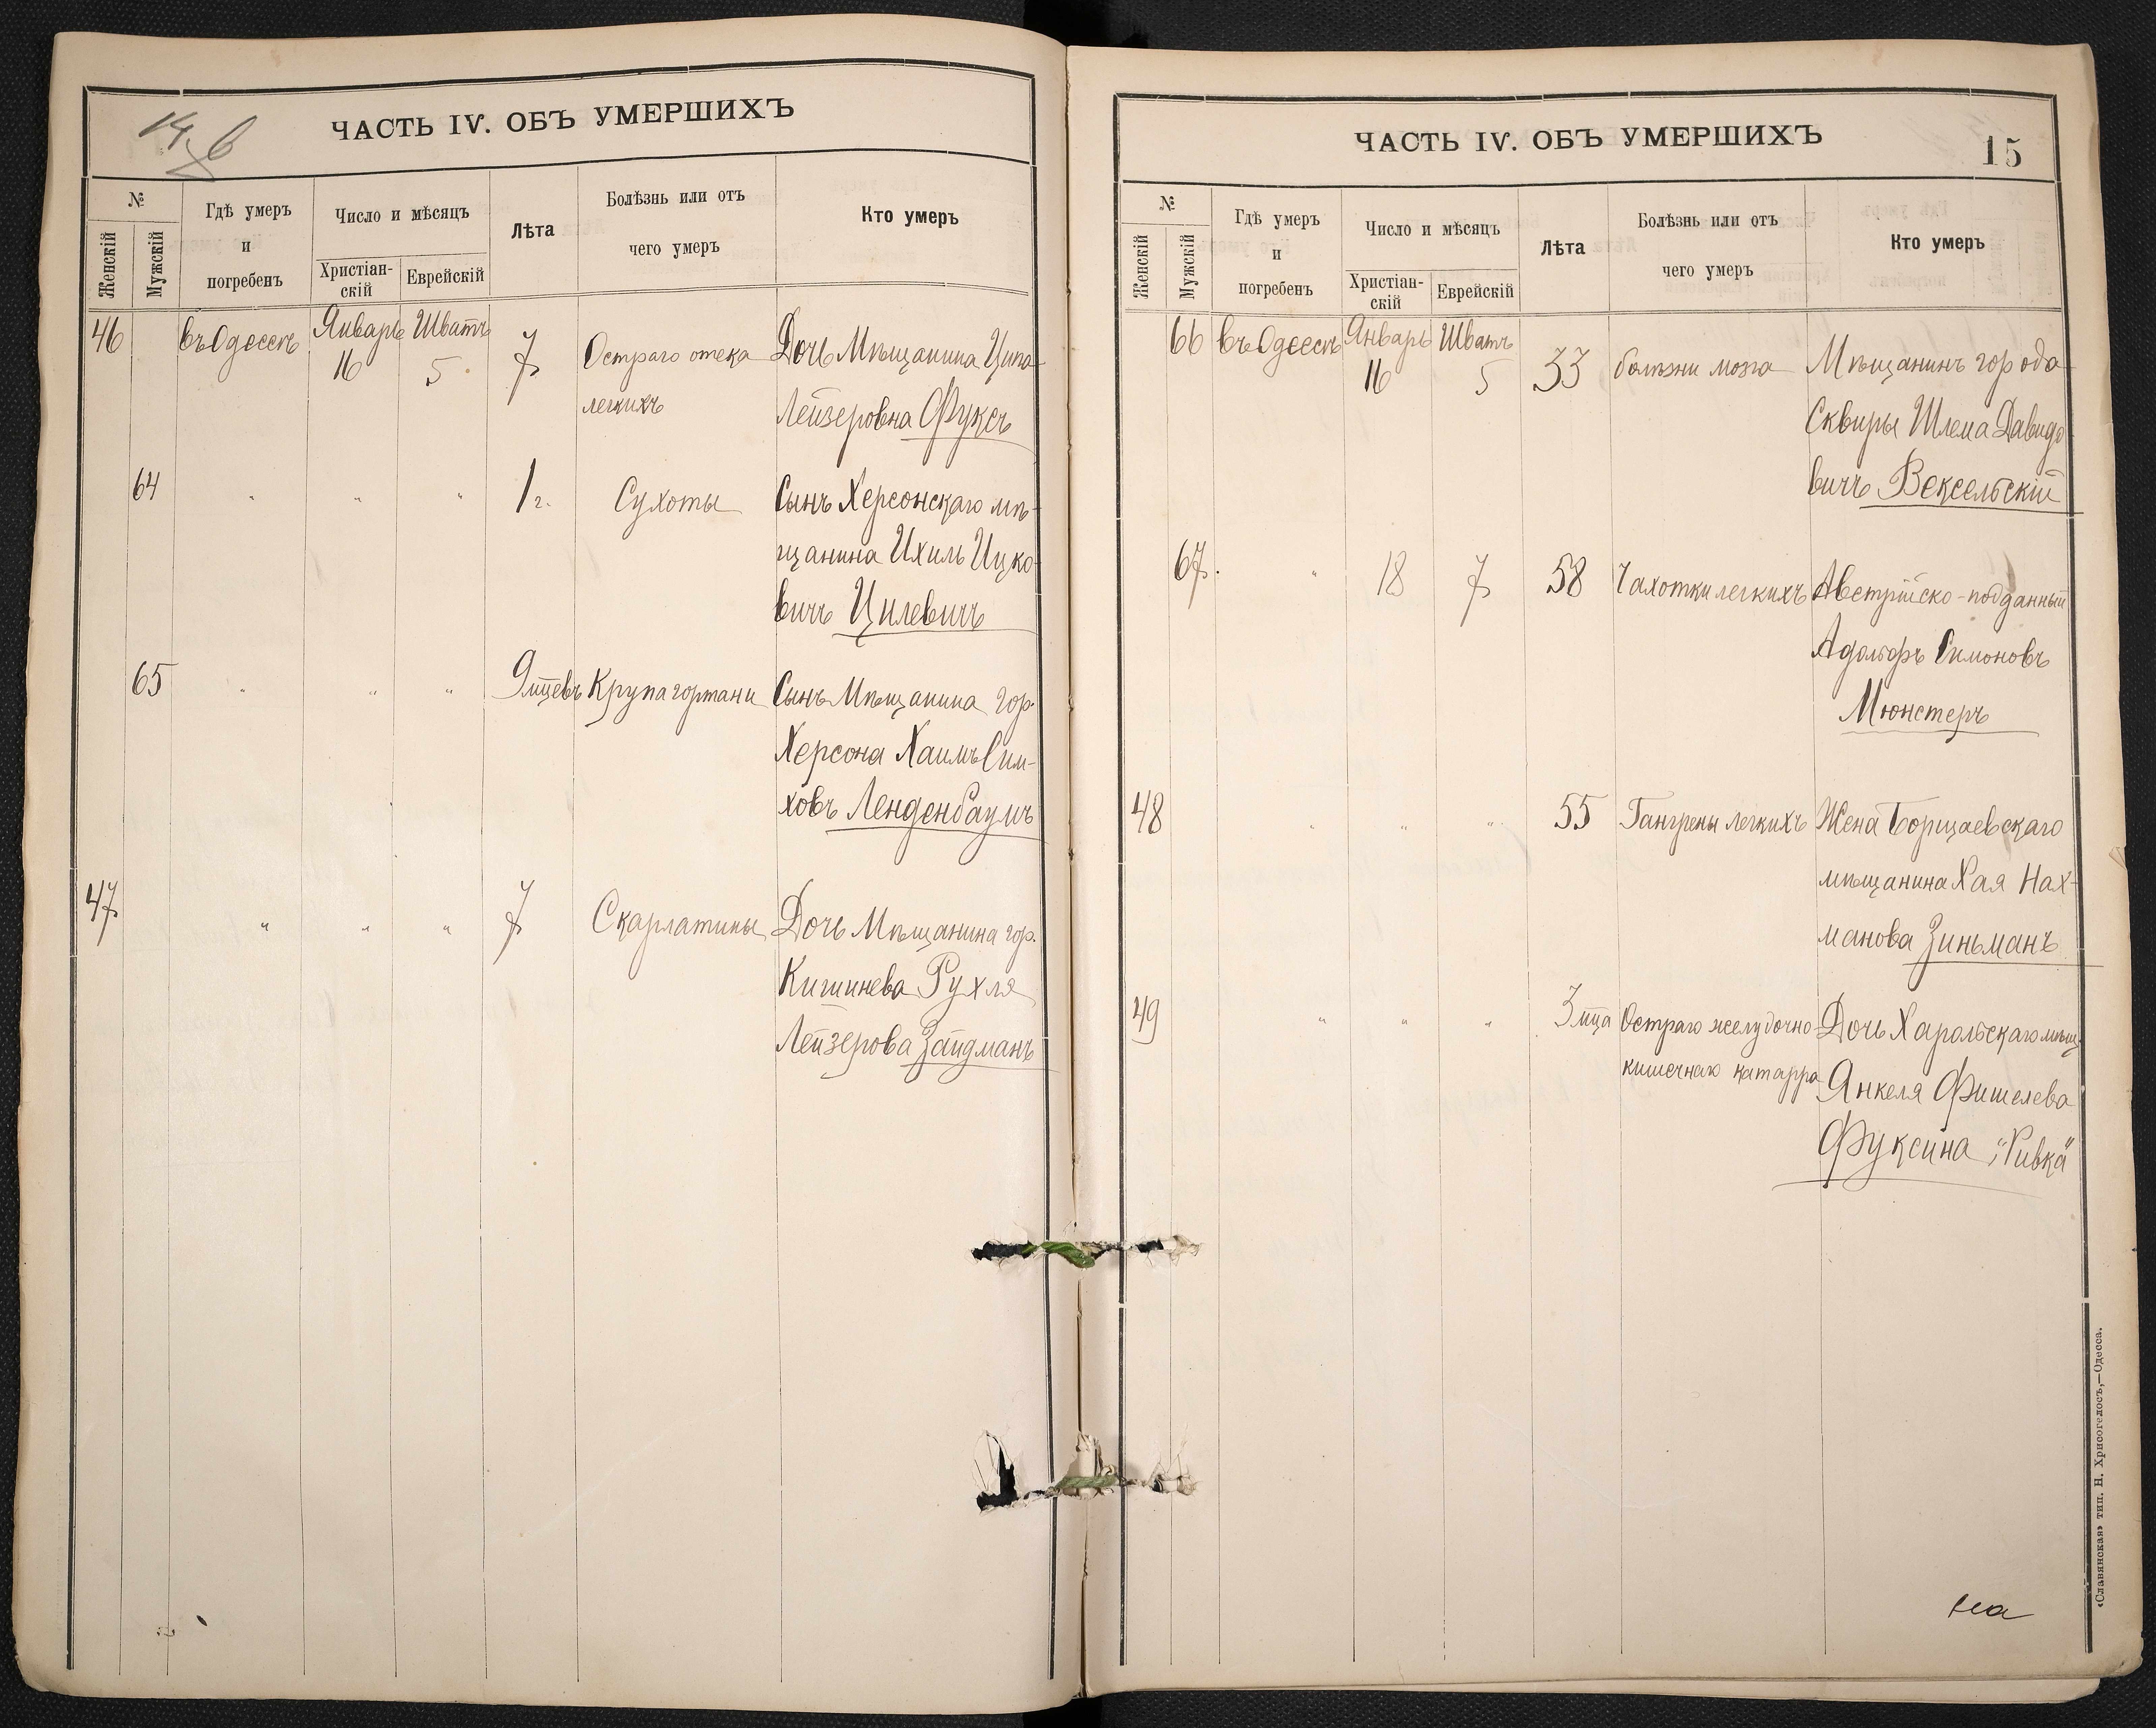 ЧАСТЬ IV. ОБЪ УМЕРШИХЪ
№
Женскій
Мужскій
Гдѣ умеръ
и
погребенъ
Число и мѣсяцъ
Христіан-
скій
Еврейскій
Лѣта
Болѣзнь или отъ
чего умеръ
Кто умеръ
46 въ Одессѣ Январь 16 Шватъ 5 7 Остраго отека Дочь Мѣщанина Ципа
легкихъ Лейзеровна Фуксъ
64 " " " 1 г. Сухоты Сынъ Херсонскаго мѣ-
щанина Ихиль Ицко-
вичъ Цилевичъ
65 " " " 9 мцевъ Крупа гортани Сынъ Мѣщанина гор.
Херсона Хаимъ Сим-
ховъ Ленденбаумъ
47 " " " 7 Скарлатины Дочь Мѣщанина гор.
Кишинева Рухля
Лейзерова Зайдманъ
ЧАСТЬ IV. ОБЪ УМЕРШИХЪ
15
№
Женскій
Мужскій
Гдѣ умеръ
и
погребенъ
Число и мѣсяцъ
Христіан-
скій
Еврейскій
Лѣта
Болѣзнь или отъ
чего умеръ
Кто умеръ
66 въ Одессѣ Январь 16 Шватъ 5 33 болѣзни мозга Мѣщанинъ города
Сквиры Шлема Давидо-
вичъ Вексельскій
67. " 18 7 58 Чахотки легкихъ Австрійско-подданный
Адольфъ Симоновъ
Мюнстеръ
48 " " " 55 Гангрены легкихъ Жена Борщаевскаго
мѣщанина Хая Нах-
манова Зиньманъ
49 " " " 3 мца Остраго желудочно- Дочь Харольскаго мѣщ.
кишечнаго катарра Янкеля Фишелева
Фуксина "Ривка"
на
«Славянская» тип. Н. Хрисогелосъ,—Одесса.